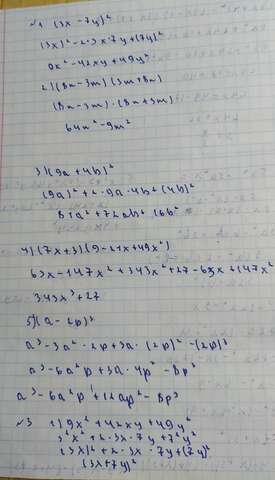 №1 (3x - 7y)²
(3x)² - 2·3x·7y + (7y)²
9x² - 42xy + 49y²
2) (8n - 3m)(3m + 8n)
(8n - 3m)·(8n + 3m)
64n² - 9m²
3) (9a + 4b)²
(9a)² + 2·9a·4b + (4b)²
81a² + 72ab + 16b²
4) (7x + 3)(9 - 21x + 49x²)
63x - 147x² + 343x³ + 27 - 63x + 147x²
343x³ + 27
5) (a - 2p)³
a³ - 3a²·2p + 3a·(2p)² - (2p)³
a³ - 6a²p + 3a·4p² - 8p³
a³ - 6a²p + 12ap² - 8p³
№3 1) 9x² + 42xy + 49y²
3²x² + 2·3x·7y + 7²y²
(3x)² + 2·3x·7y + (7y)²
(3x + 7y)²